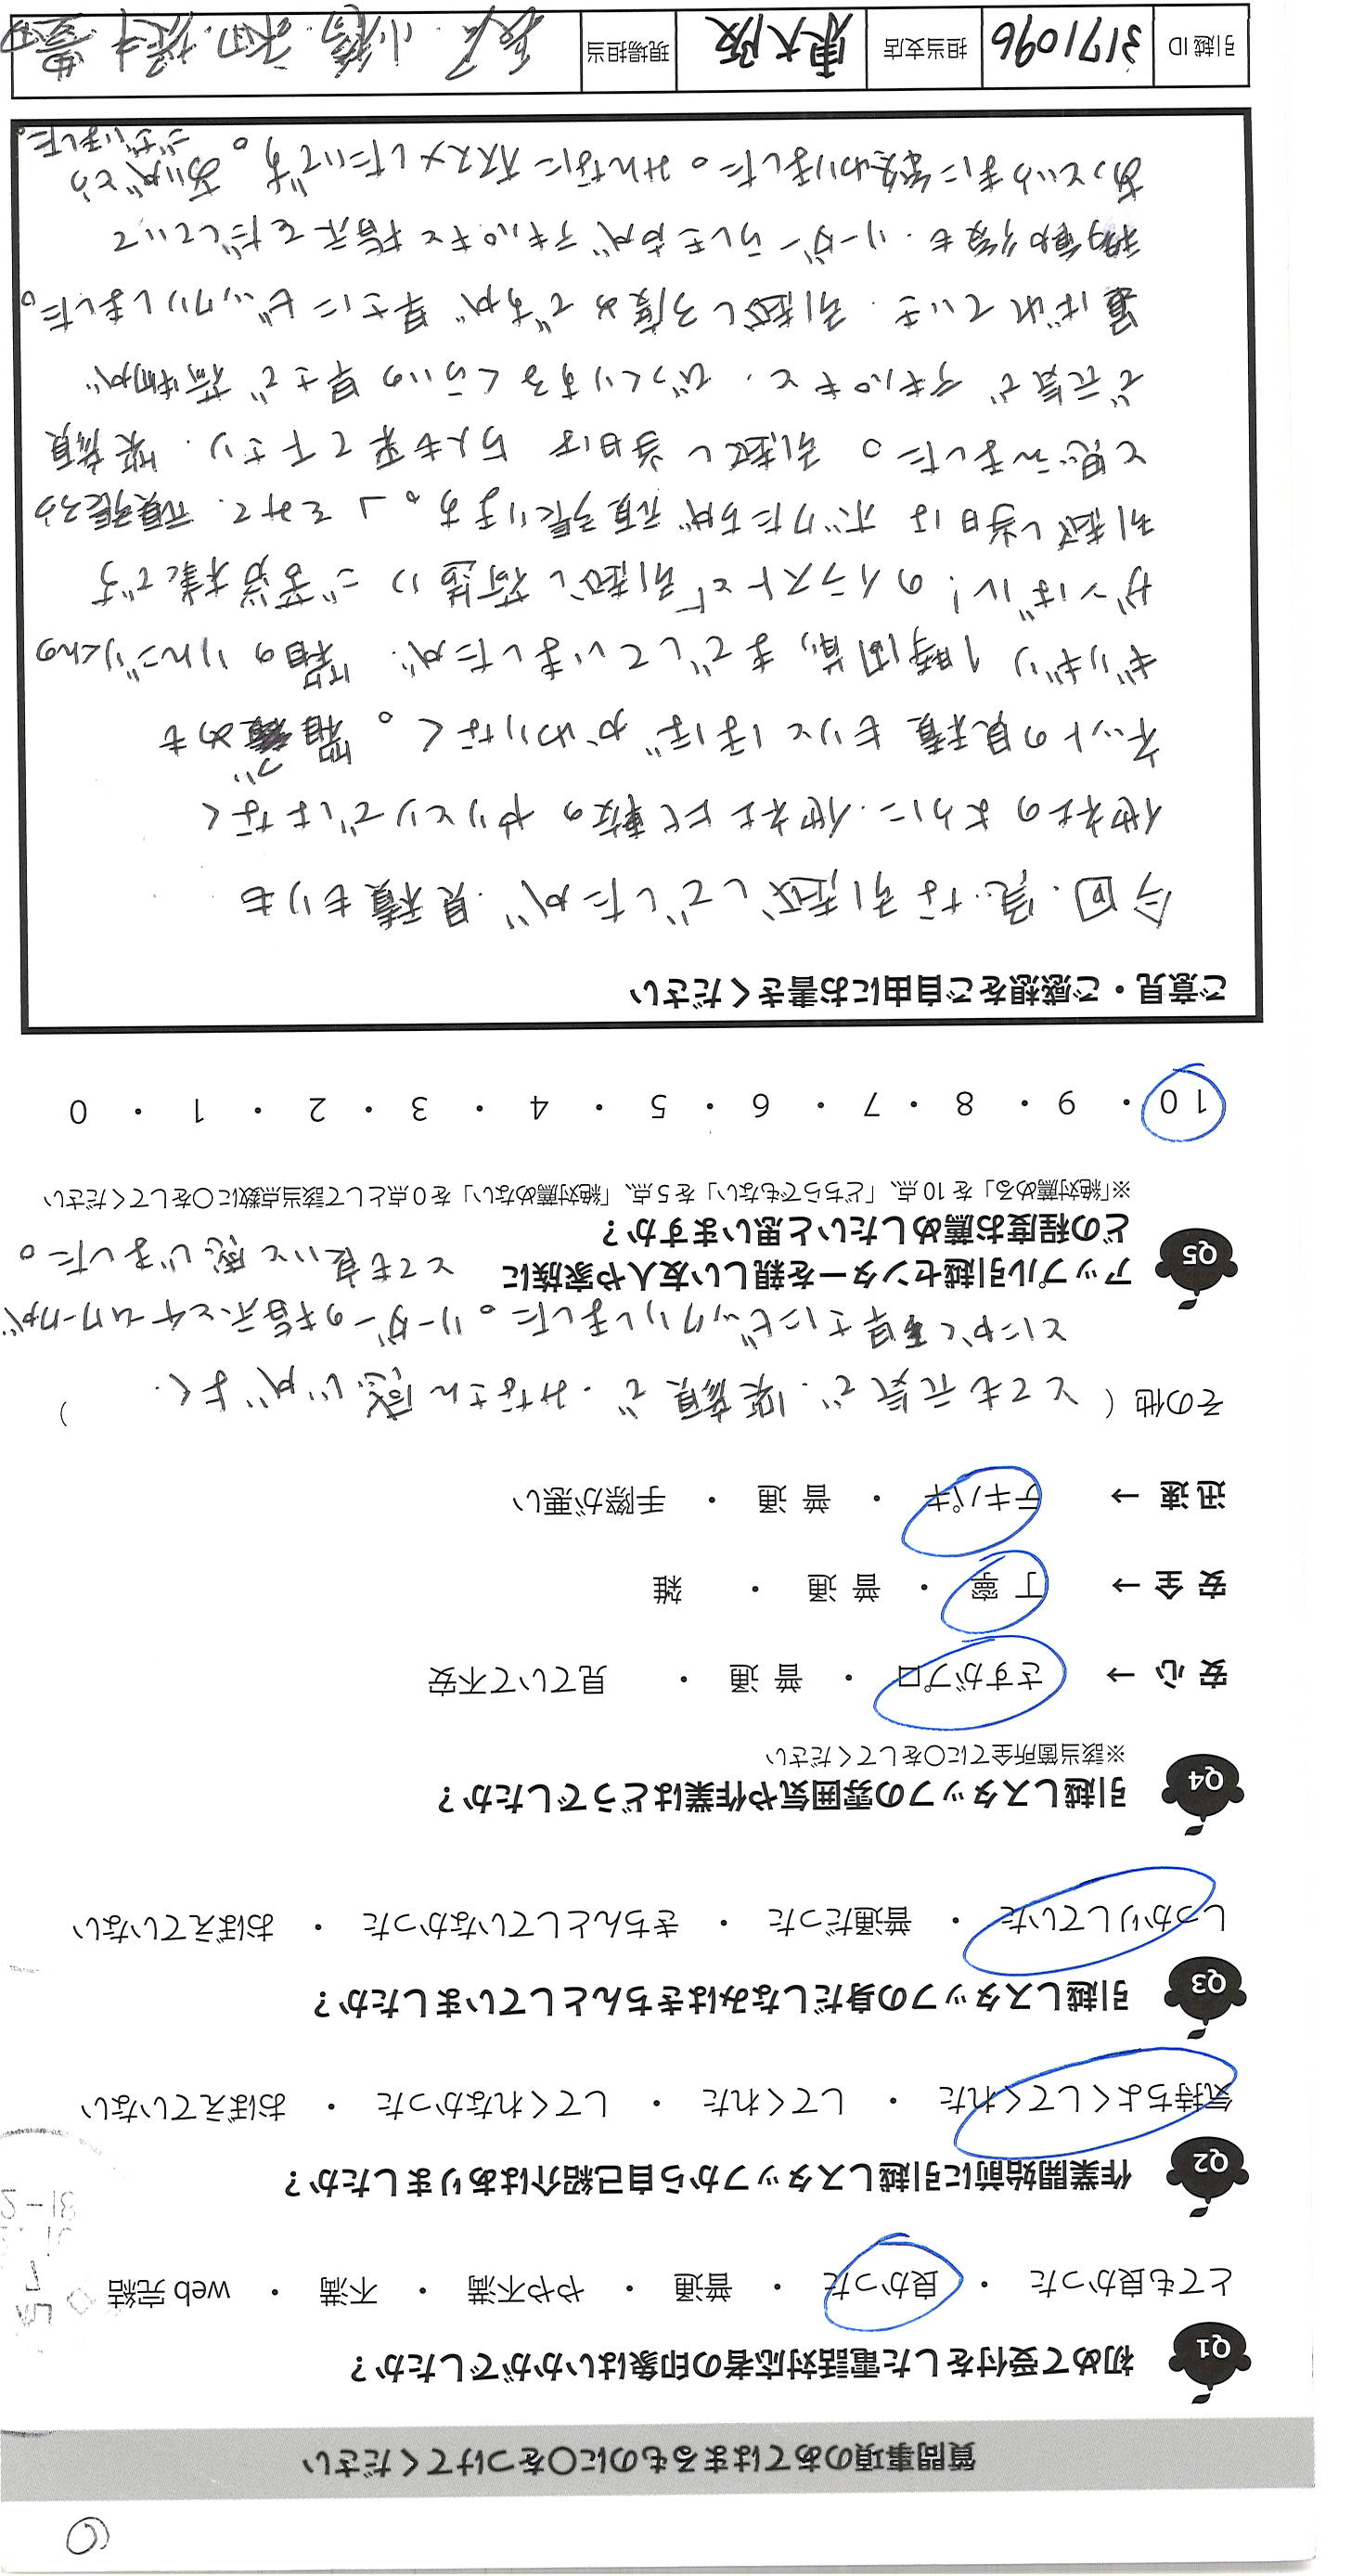 ⑥
質問事項のあてはまるものに〇をつけてください
Q1 初めて受付をした電話対応者の印象はいかがでしたか？
とても良かった ・ 良かった ・ 普通 ・ やや不満 ・ 不満 ・ web 完結
Q2 作業開始前に引越しスタッフから自己紹介はありましたか？
気持ちよくしてくれた ・ してくれた ・ してくれなかった ・ おぼえていない
Q3 引越しスタッフの身だしなみはきちんとしていましたか？
しっかりしていた ・ 普通だった ・ きちんとしていなかった ・ おぼえていない
Q4 引越しスタッフの雰囲気や作業はどうでしたか？
※該当箇所全てに〇をしてください
安 心 → さすがプロ ・ 普 通 ・ 見ていて不安
安 全 → 丁 寧 ・ 普 通 ・ 雑
迅 速 → テキパキ ・ 普 通 ・ 手際が悪い
その他（ とても元気で、笑顔で、みなさん感じがよく、 ）
とにかく早さにビックリしました。リーダーの指示とチームワークが
とても良いと感じました。
Q5 アップル引越センターを親しい友人や家族に
どの程度お薦めしたいと思いますか？
※「絶対薦める」を 10 点、「どちらでもない」を 5 点、「絶対薦めない」を 0 点として該当点数に〇をしてください
10 ・ 9 ・ 8 ・ 7 ・ 6 ・ 5 ・ 4 ・ 3 ・ 2 ・ 1 ・ 0
ご意見・ご感想をご自由にお書きください
今回、急な引越しでしたが、見積もりも
他社のように、他社と比較のやりとりではなく
ネットの見積もりとほぼかわりなく。箱づめも
ギリギリ1時間前までしていましたが、箱のりんごりくんの
ガンバレ!のイラストと「引越し荷造りご苦労様です
引越し当日はボクたちが頑張ります。」をみて、頑張ろう
と思えました。引越し当日は5人も来て下さり、笑顔
で元気で テキパキと、びっくりするくらいの早さで荷物が
運ばれていき、引越し3度めですが早さにビックリしました。
積み後も、リーダーらしき方がテキパキと指示をだしていて
あっというまに終わりました。みんなにオススメしたいです。ありがとう
ございました。
引越 ID 3171096 担当支店 東大阪 現場担当